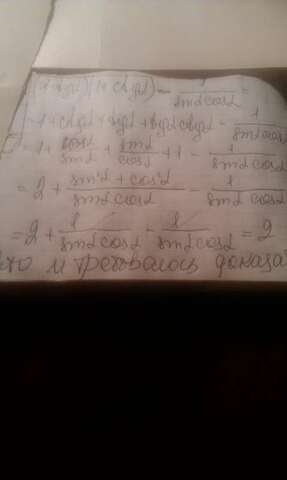 (1+tgα)(1+ctgα) - 1/(sinα cosα) =
= 1 + ctgα + tgα + tgα ctgα - 1/(sinα cosα)
= 1 + cosα/sinα + sinα/cosα + 1 - 1/(sinα cosα)
= 2 + (sin²α + cos²α)/(sinα cosα) - 1/(sinα cosα)
= 2 + 1/(sinα cosα) - 1/(sinα cosα) = 2
что и требовалось доказа